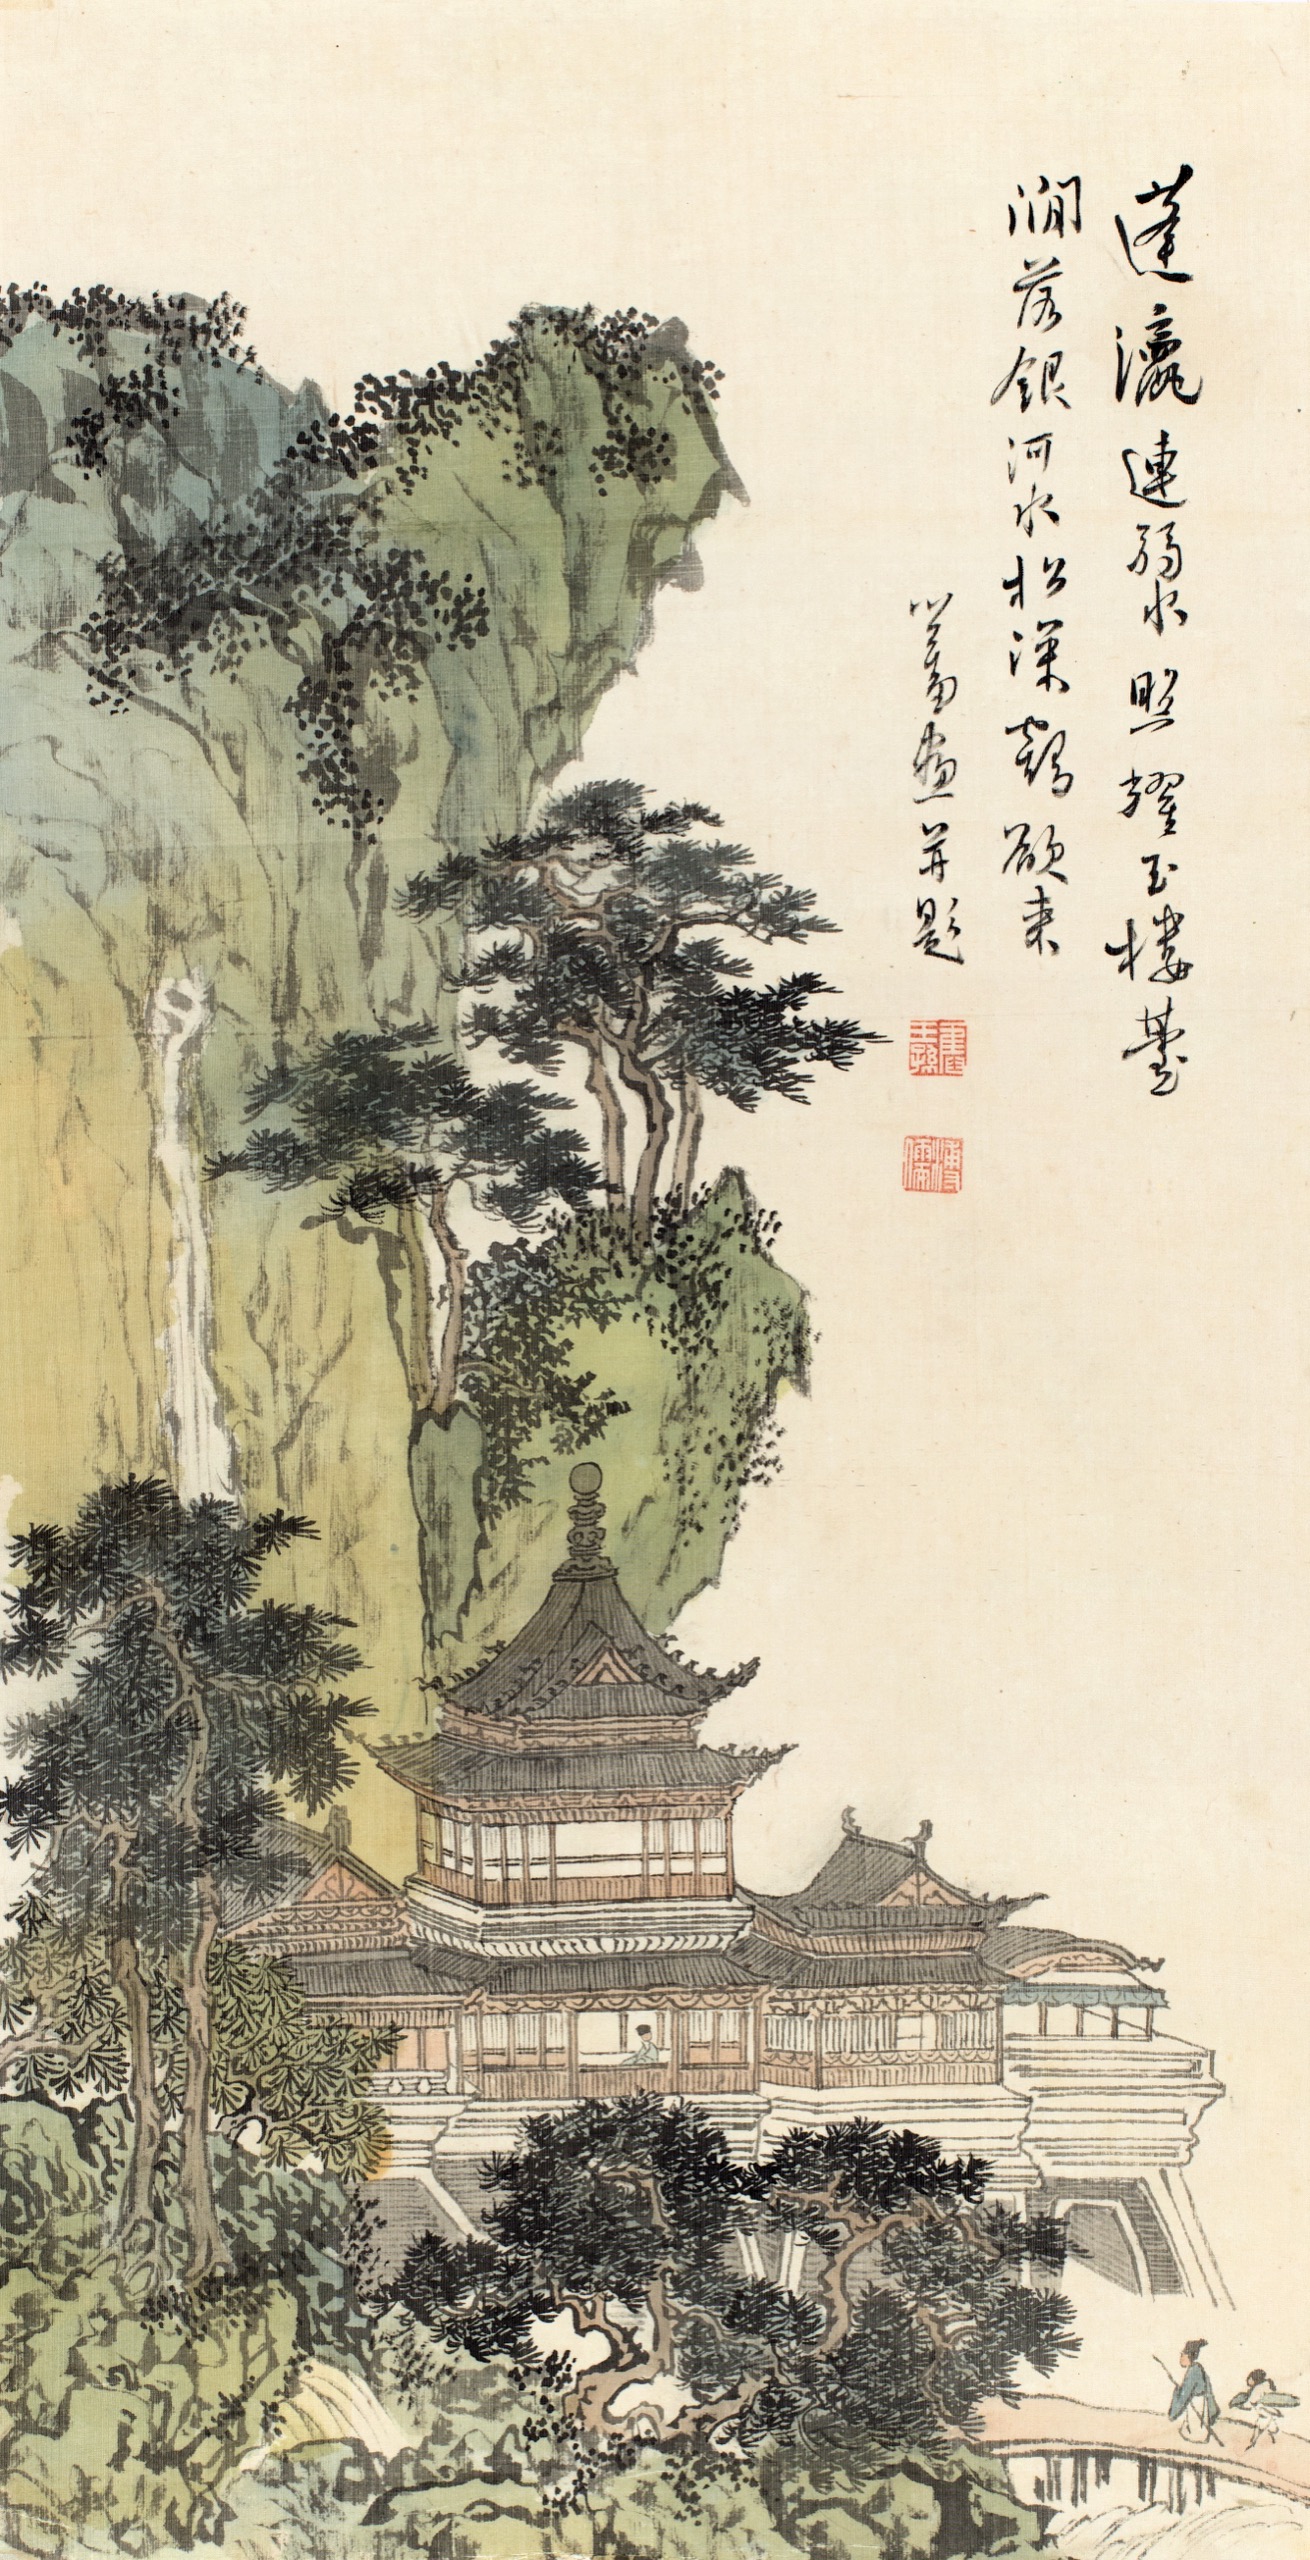 蓬瀛連弱水照耀玉樓臺
澗落銀河水松深鶴欲來
心畬畫并題
舊王孫
溥儒